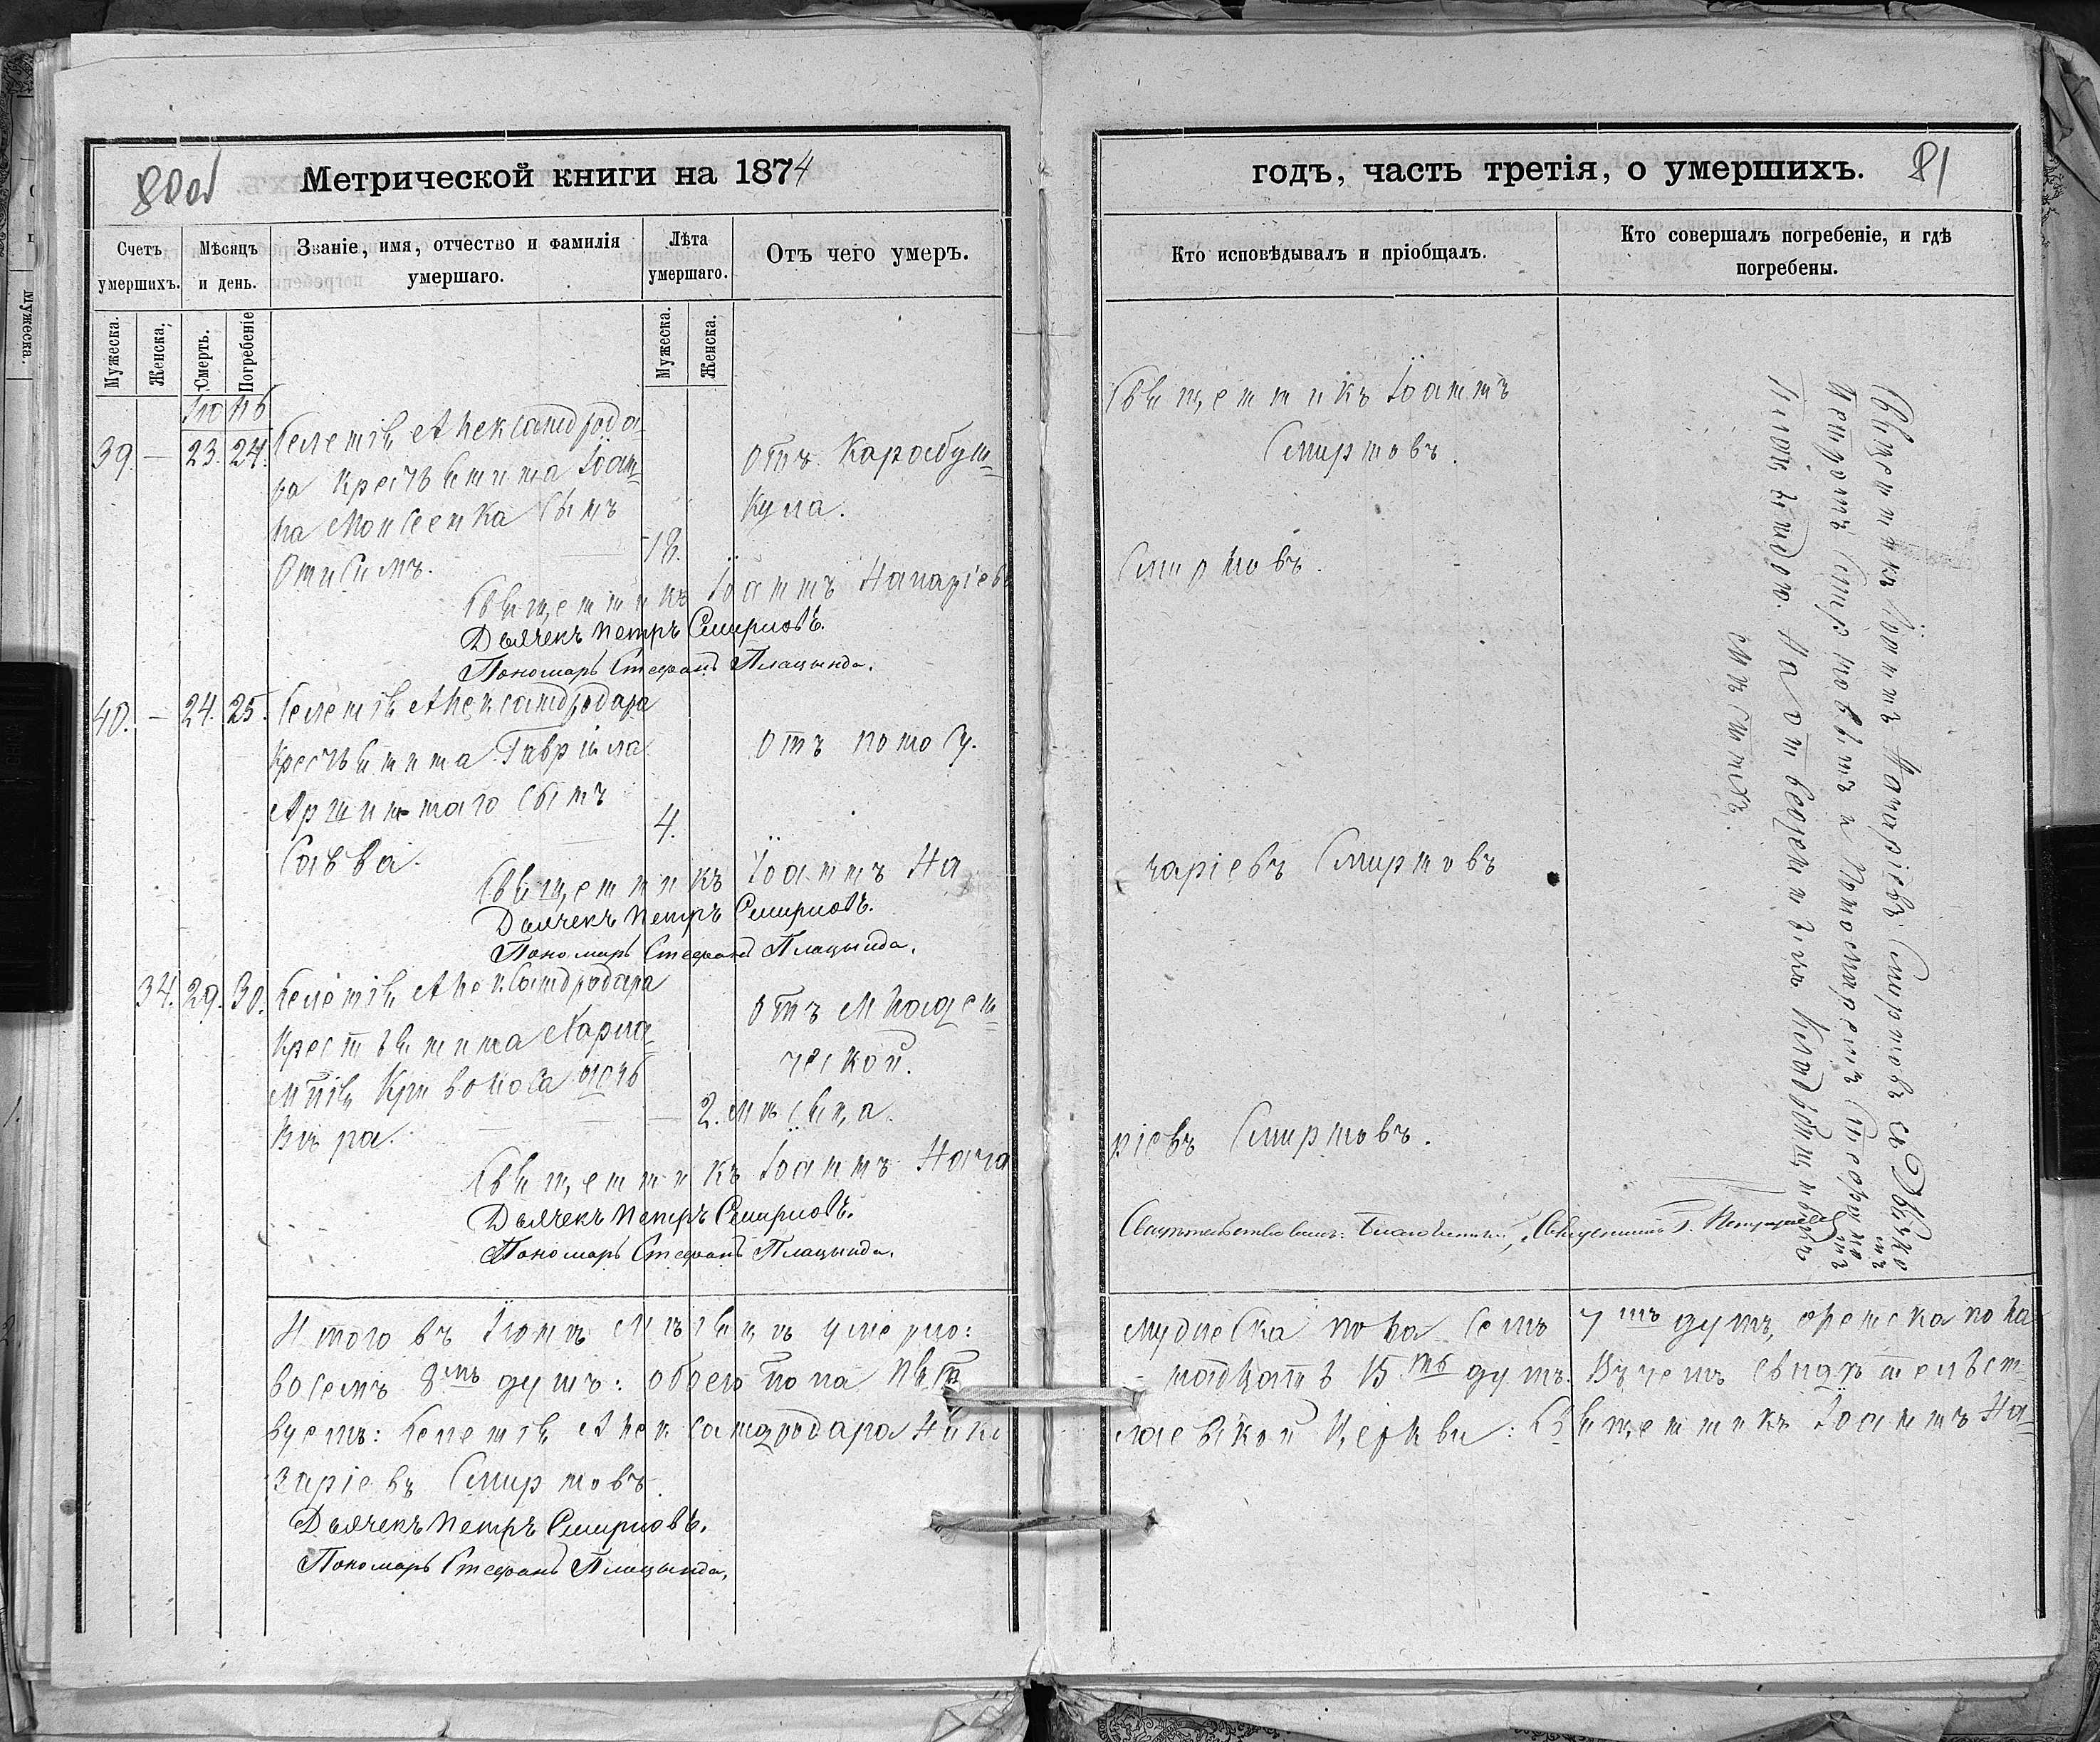 80об
Метрической книги на 1874
Счетъ умершихъ.
Мѣсяцъ и день.
Званіе, имя, отчество и фамилія умершаго.
Лѣта умершаго.
Отъ чего умеръ.
Мужеска.
Женска.
Смерть.
Погребеніе
Мужеска.
Женска.
Іюнь
39. — 23. 24.
Селенія Александрода
ра крестьянина Іоан
на Моисеенка сынъ
Онисимъ. 18.
отъ Карабун
кула.
Священникъ Іоаннъ Назаріевъ
Дьячекъ Петръ Смирновъ.
Пономарь Стефанъ Плацында.
40. — 24. 25.
Селенія Александродара
крестьянина Гавріила
сынъ
Савва. 4.
отъ поносу.
Священникъ Іоаннъ На
Дьячекъ Петръ Смирновъ.
Пономарь Стефанъ Плацында.
34. 29. 30.
Селенія Александродара
крестьянина Харла
мпія Кривоноса дочь
Вѣра. — 2. мѣсяца.
отъ младен
ческой.
Священникъ Іоаннъ Наза
Дьячекъ Петръ Смирновъ.
Пономарь Стефанъ Плацында.
Итого въ Іюнѣ мѣсяцѣ умерло:
восемь 8мь душъ: обоего пола пят
вуемъ: Селенія Александродара Нико
заріевъ Смирновъ.
Дьячекъ Петръ Смирновъ.
Пономарь Стефанъ Плацында.
годъ, часть третія, о умершихъ.
81
Кто исповѣдывалъ и пріобщалъ.
Кто совершалъ погребеніе, и гдѣ погребены.
Священникъ Іоаннъ
Смирновъ.
Смирновъ.
заріевъ Смирновъ
ріевъ Смирновъ.
Священникъ Іоаннъ Назаріевъ Смирновъ съ Дьячко
мъ Петромъ Смирновымъ и Пономаремъ Стефано
мъ Плацындою. На отведенномъ кладбищѣ
Свидѣтельствовалъ: Благочинный, Священникъ
мужеска пола семь 7мь душъ, женска пола
надцать 15ть душъ. Въ чемъ свидѣтельст
лаевской Церкви: Священникъ Іоаннъ На